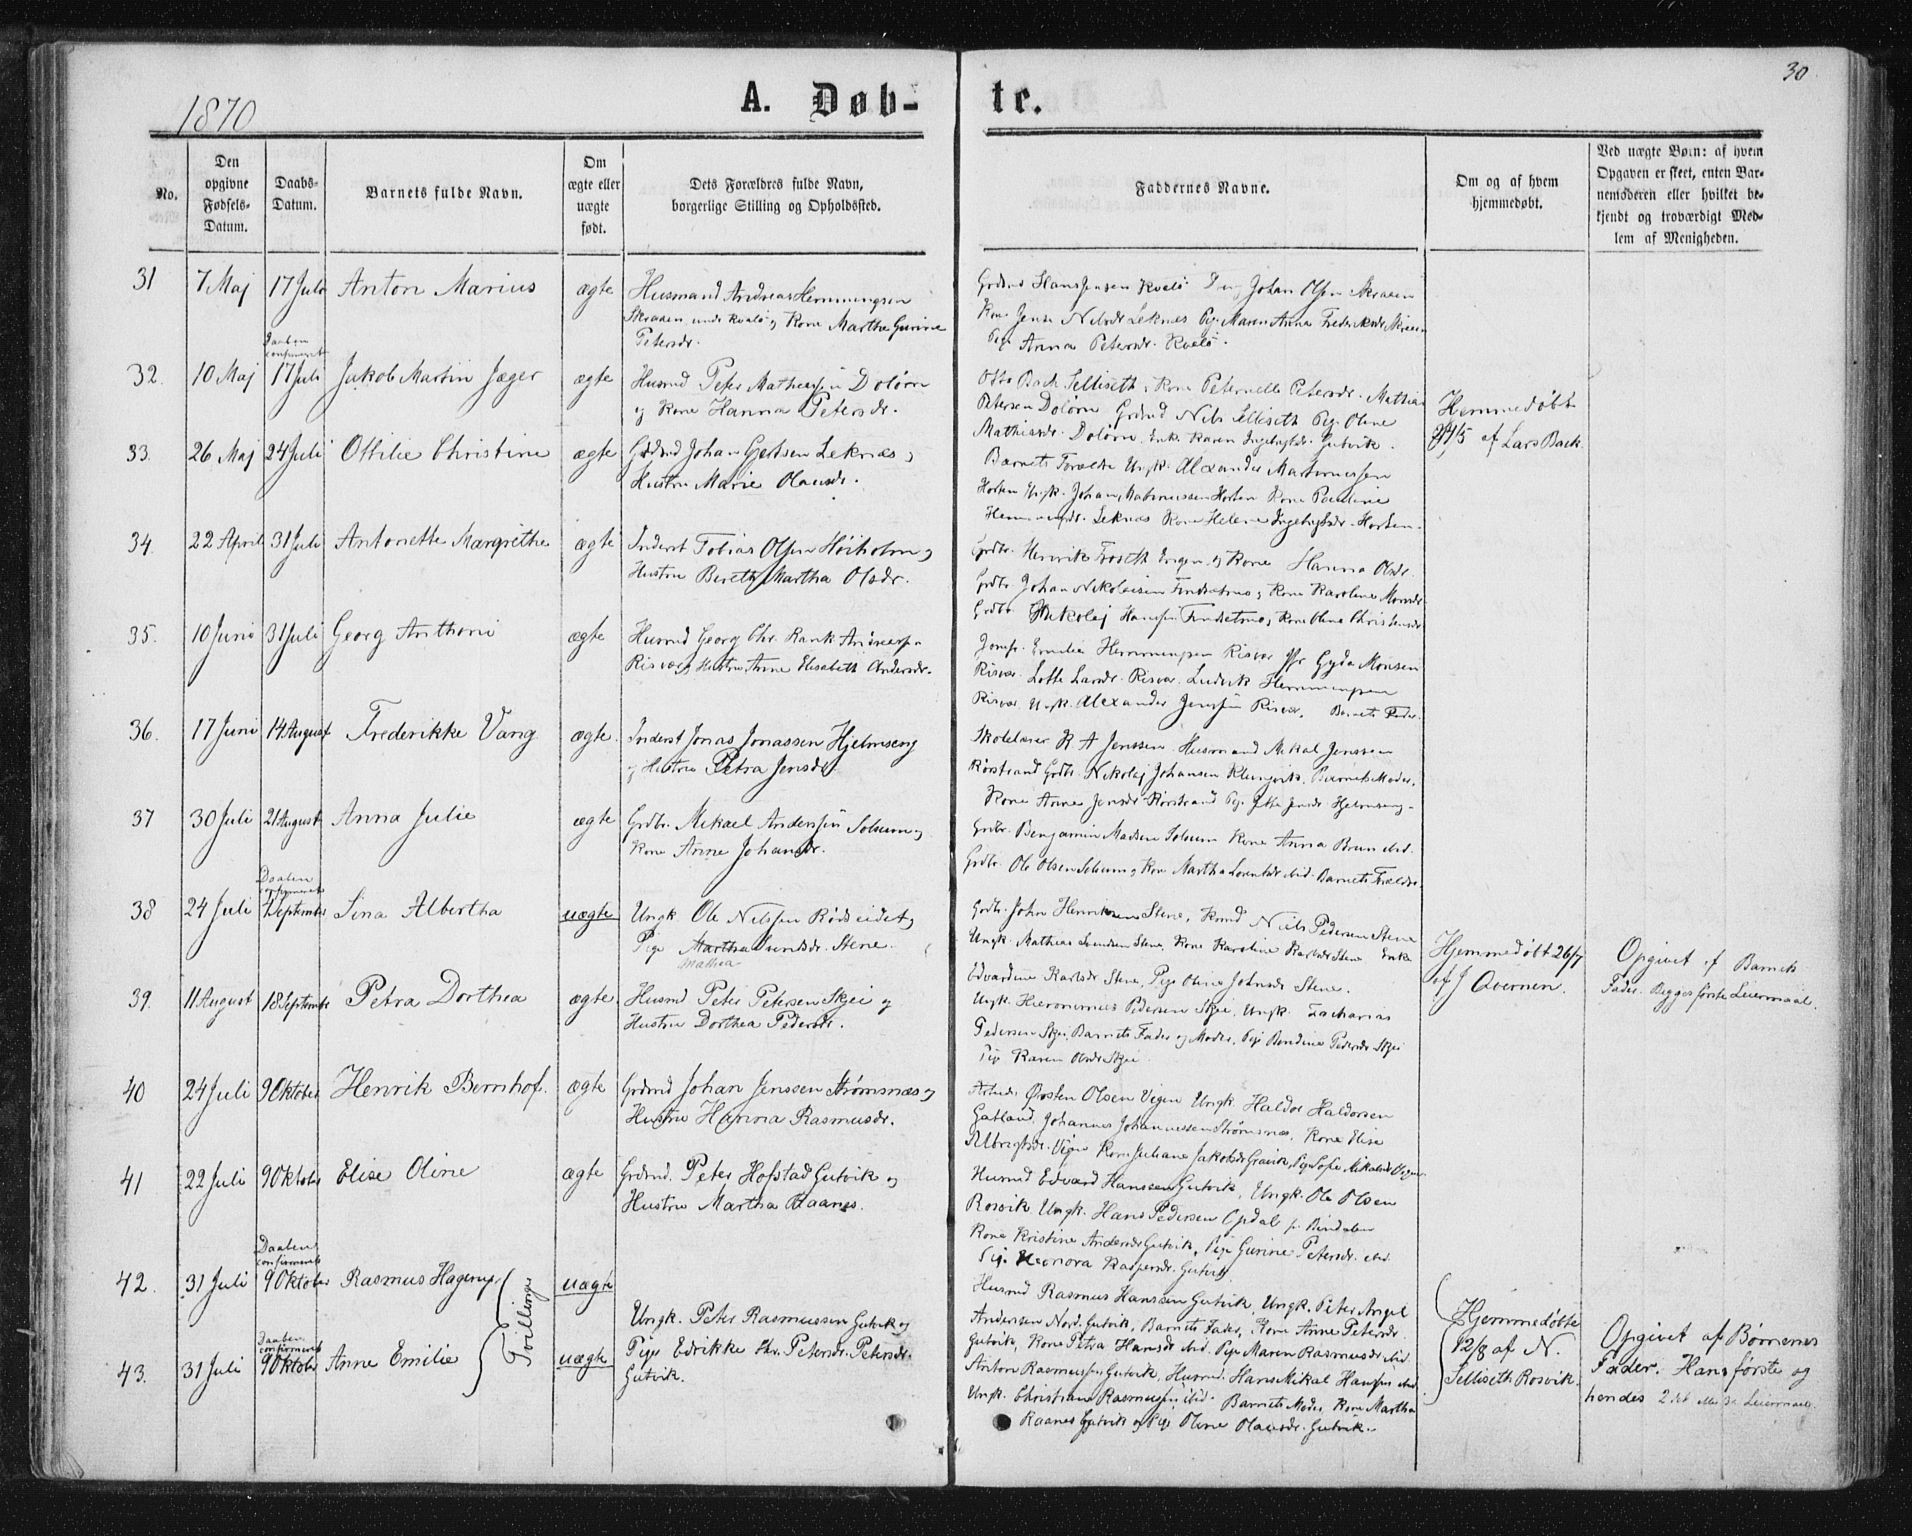 1870
A. Døb-
te.
30
No.
Den opgivne Fødsels-Datum.
Daabs-Datum.
Barnets fulde Navn.
Om ægte eller uægte født.
Dets Forældres fulde Navn, borgerlige Stilling og Opholdssted.
Faddernes Navne.
Om og af hvem hjemmedøbt.
Ved uægte Børn: af hvem Opgaven er skeet, enten Bar-nemoderen eller hvilket be-kjendt og troværdigt Med-lem af Menigheden.
31 7 Maj 17 Juli Anton Marius ægte Husmand Andreas Hemmingsen
Skraaen under Kvalø og Kone Martha Gurine
Petersdr.
Grdmd Hans Jensen Kvalø Johan Olsen Skraaen
Kone Nilsdr Leknes Pige Maren Anna Frederiksdr Skraaen
Pige Anna Petersdr. Kvalø.
32. 10 Maj Daaben confirmeret 17 Juli Jakob Martin Jæger ægte Husmd Peter Mathiassen Doløen
og Kone Hanna Petersdr.
Otto Bach Selliseth, Kone Peternelle Petersdr. Mathias
Petersen Doløen Grdmd Nils Selliseth Pige Oline
Mathiasdr. Doløen, Enke Karen Ingebrigtsdr. Gutvik.
Hjemmedøbt
af Lars Back
33. 26 Maj 24 Juli Ottilie Christine ægte Grdmd Johan Gjertsen Leknæs og
Hustru Marie Olausdr.
Barnets Forældre Ungk. Alexander Martinussen
Horten Ungk. Johan Rasmussen Horten Kone Pauline
Leknæs Kone Helene Ingebrigtsdr. Horten.
34. 22 April 31 Juli Antonette Margrethe ægte Inderst Tobias Olsen Høiholm og
Hustru Bereth Martha Olsdr.
Grdbr. Henrik og Kone Hanna Olsdr.
Grdbr Johan Nikolaisen og Kone Karoline
Grdbr. Nikolaj Hansen og Kone Oline Christensdr
35. 10 Juni 31 Juli Georg Anthoni ægte Husmd Georg Chr. Rank Andreassen
Risvær og Hustru Anne Elisabeth Andersdr.
Jomfr. Emilie Hemmingsen Risvær Gyda Monsen
Risvær. Lotte Larsdr. Risvær. Ludvik Hemmingsen
Risvær Ungk. Alexander Jenssen Risvær. Barnets Fader.
36. 17 Juni 14 August Frederikke Vang ægte. Inderst Jonas Jonassen Hjelmseng
og Hustru Petra Jensdr
Skolelærer R A Jenssen Husmand Mikal Jenssen
Rørstrand Grdbr. Nikolaj Johansen Klungvik. Barnets Moder.
Kone Anne Jensdr Rørstrand Pige Jensdr Hjelmseng.
37 30 Juli 21 August Anna Julie ægte Grdbr. Mikael Andersen Solsum og
Kone Anne Johansdr.
Grdbr. Benjamin Madsen Solsum Kone Anna Brun ibid.
Grdbr. Ole Olsen Solsum og Kone Martha Lorentsdr ibid. Barnets Forældre
38 24 Juli Daaben confirmeret September Sina Albertha uægte Ungk Ole Nilssen Rødseidet og
Pige Martha Svendsdr. Stene.
Mathea
Grdbr. John Henriksen Stene, Nils Pedersen Stene
Ungk. Mathias Svendsen Stene, Kone Karoline Karlsdr Stene Enke
Edvardine Karlsdr Stene, Pige Oline Johnsdr Stene.
Hjemmedøbt 26/7
af J Overnen.
Opgivet af Barnets
Fader. Begges første Leiermaal.
39. 11 August 18 September Petra Dorthea ægte Husmd Peter Petersen Skjei og
Hustru Dorthea Pedersdr.
Ungk. Hieronimus Pedersen Skjei, Ungk. Zacharias
Pedersen Skjei, Barnets Fader og Moder, Pige Bendine Pedersdr Skjei
Pige Karen Olsdr Skjei
40 24 Juli 9 Oktober Henrik Bernhof. ægte Grdmd Johan Jenssen Strømsnæs og
Hustru Hanna Rasmusdr.
Olsen Vigen Ungk. Haldor Haldorsen
Gatland. Johannes Johannessen Strømsnæs. Kone Elise
Albrigtsdr. Vigen Kone Juliane Jakobsdr Pige Sofie Mikalsdr Vigen
41 22 Juli 9 Oktober Elise Oline ægte Grdmd. Peter Hofstad Gutvik og
Hustru Martha Raanes.
Husmd Edvard Hanssen Gutvik, Ungk. Ole Olsen
Rosvik, Ungk. Hans Pedersen Opdal Bindalen
Kone Kristine Andersdr Gutvik, Pige Gurine Petersdr. ibid
Pige Leonora Kaspersdr. Gutvik
42. 31 Juli Daaben confirmeret 9 Oktober Rasmus Hagerup uægte
Tvillinger
Ungk. Peter Rasmussen Gutvik og
Pige Edrikke Chr. Petersdr. Petersdr.
Gutvik.
43. 31 Juli Daaben confirmeret 9 Oktober Anne Emilie uægte
Husmd Rasmus Hanssen Gutvik, Ungk. Peter Angel
Andersen Nord. Gutvik, Barnets Fader, Kone Anne Petersdr.
Gutvik, Kone Petra Hansdr ibid. Pige Maren Rasmusdr ibid.
Anton Rasmussen Gutvik, Husmd. Hans Mikal Hansen ibid
Ungk. Christian Rasmussen ibid. Barnets Moder, Kone Martha
Raanes Gutvik og Pige Oline Olausdr. Gutvik.
Hjemmedøbte
12/8 af N.
Selliseth Rosvik.
Opgivet af Børnenes
Fader. Hans første og
hendes 2det eller 3die Leiermaal.